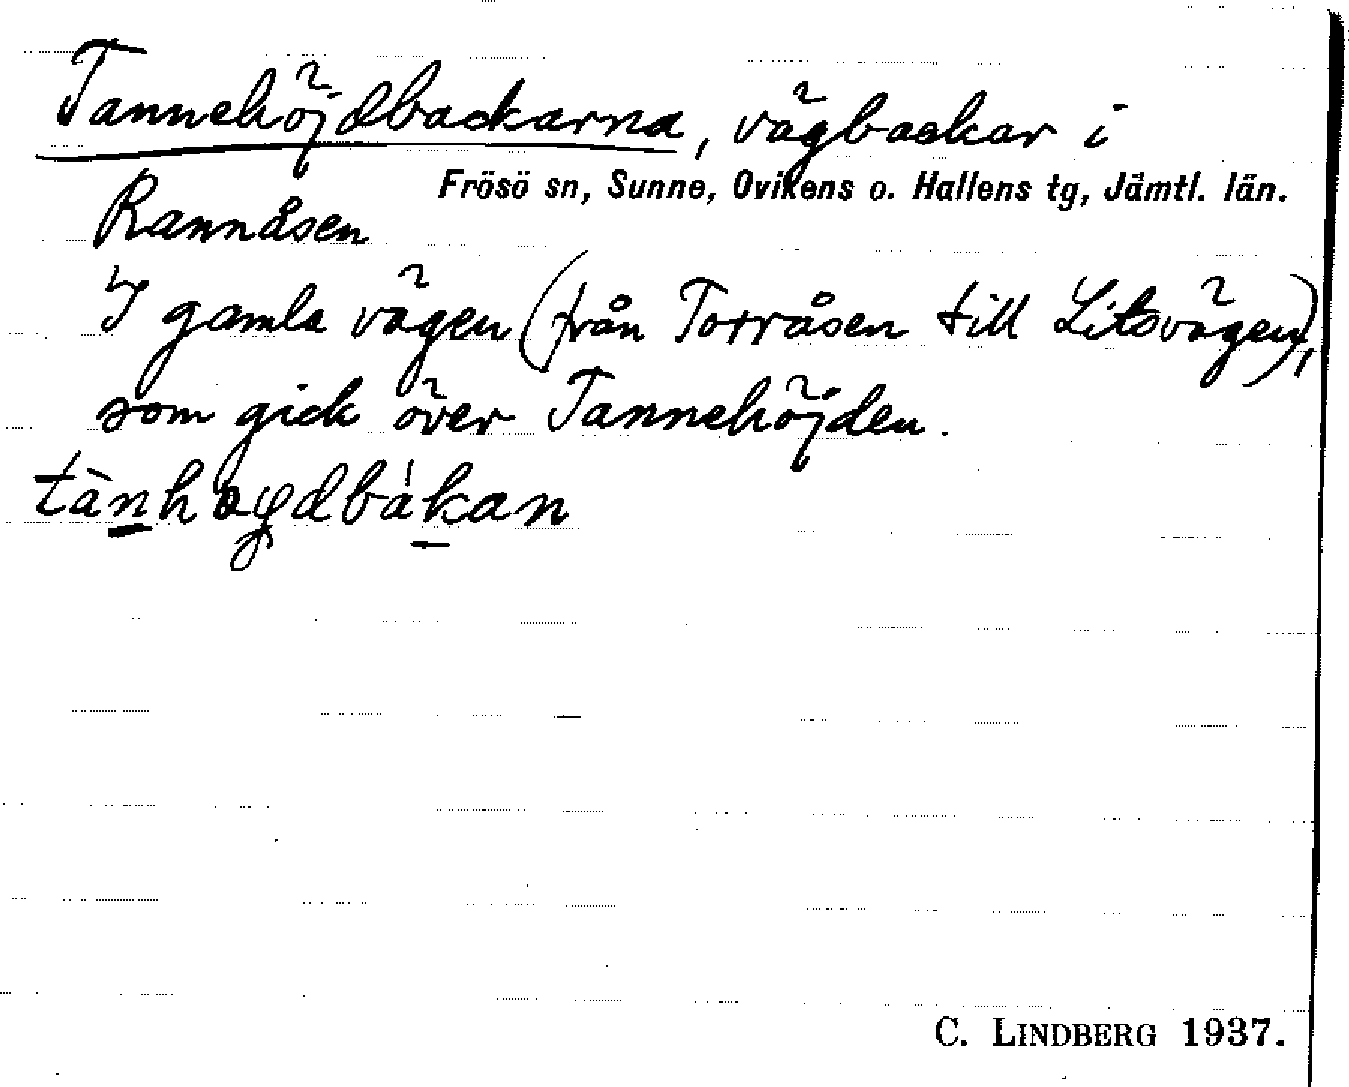 Tannehöjdbackarna, vägbackar i
Frösö sn, Sunne, Ovikens o. Hallens tg, Jämtl. län.
Rannåsen
I gamla vägen (från Torråsen till Litsvägen),
som gick över Tannehöjden.
C. LINDBERG 1937.